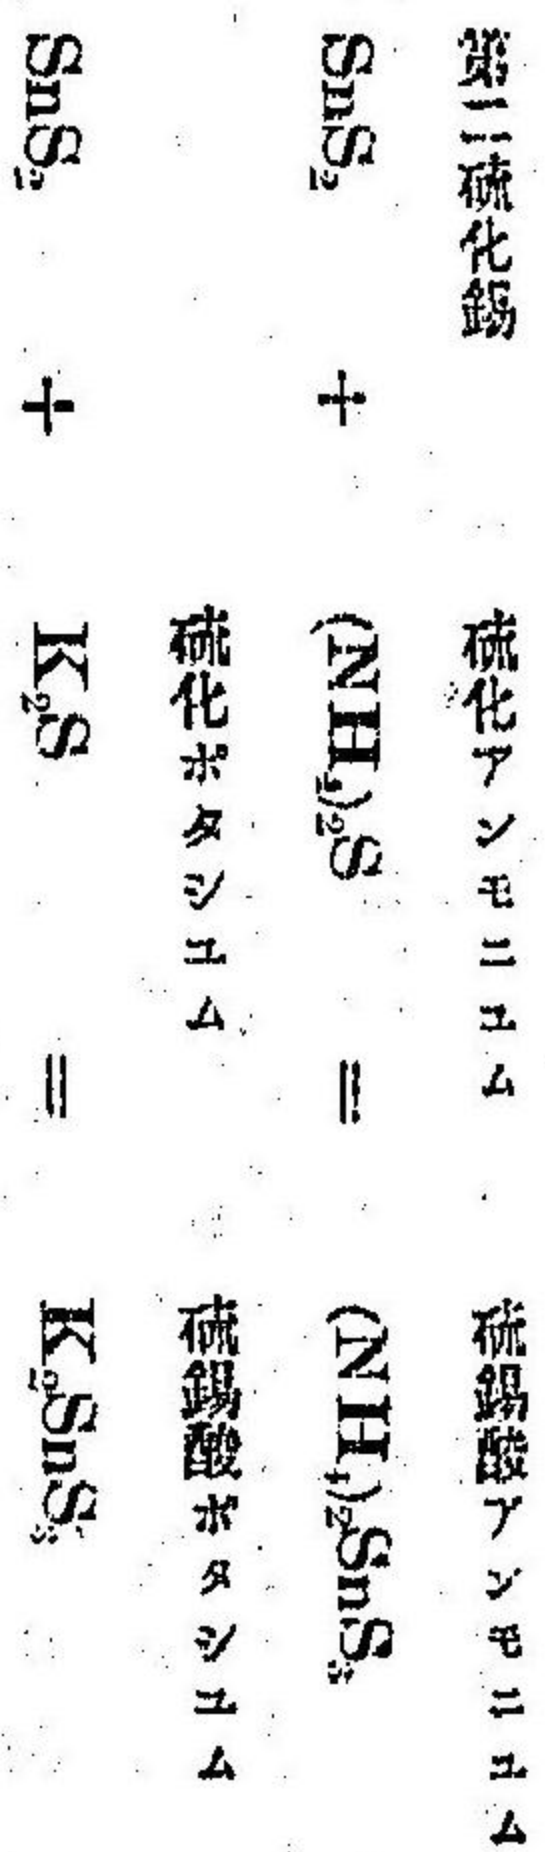 第二硫化錫　硫化アンモニユム　硫錫酸アンモニユム
SnS₂ + (NH₄)₂S = (NH₄)₂SnS₃
硫化ポタシユム　硫錫酸ポタシユム
SnS₂ + K₂S = K₂SnS₃